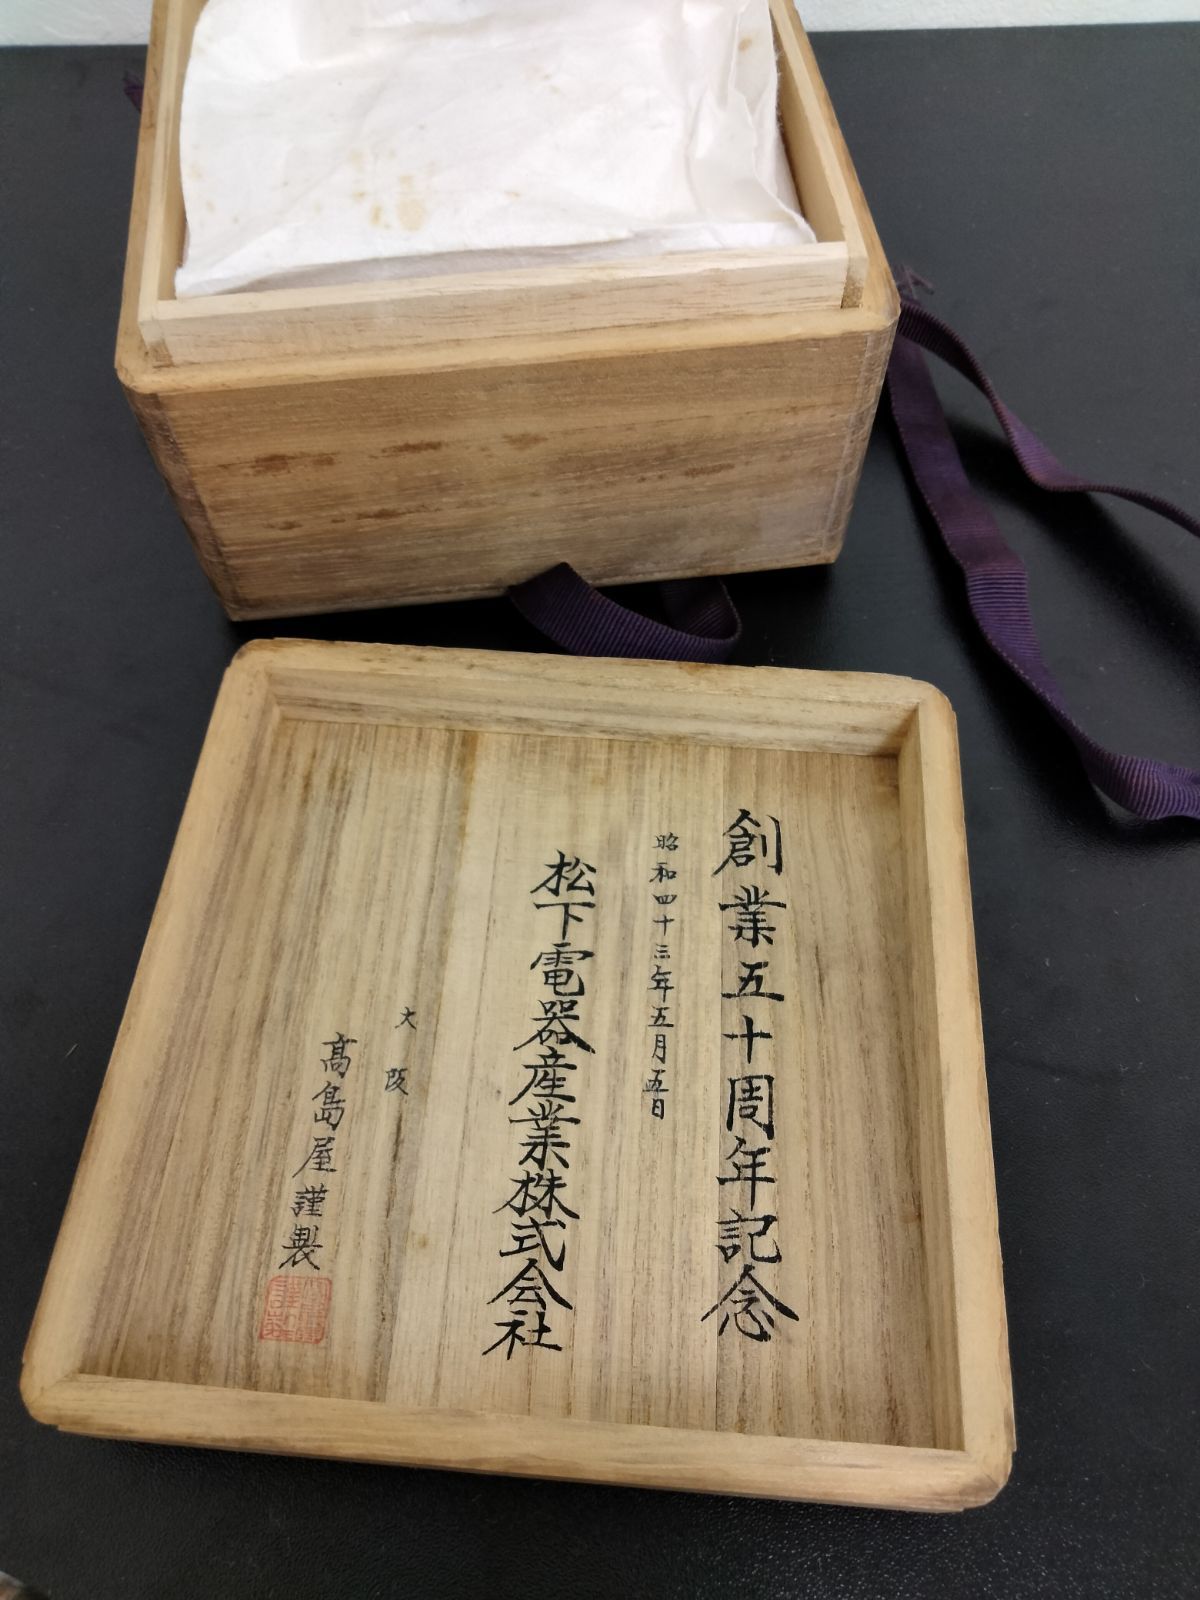 創業五十周年記念
昭和四十三年五月五日
松下電器産業株式会社
大阪
髙島屋謹製